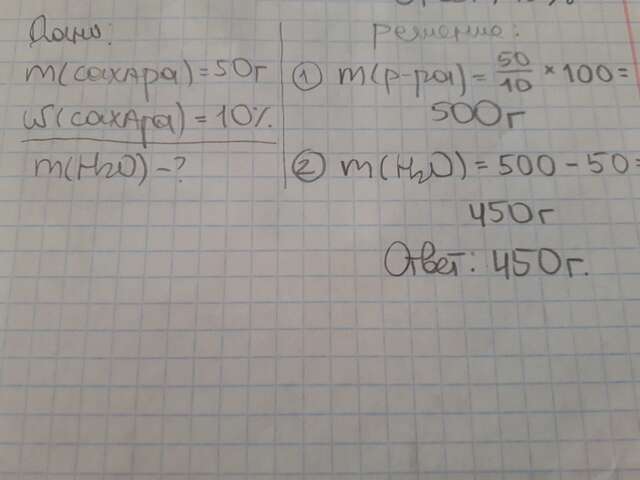 Дано:
m(сахара) = 50г
ω(сахара) = 10%
m(H₂O) - ?
Решение:
① m(р-ра) = 50/10 × 100 =
500г
② m(H₂O) = 500 - 50 =
450г
Ответ: 450г.